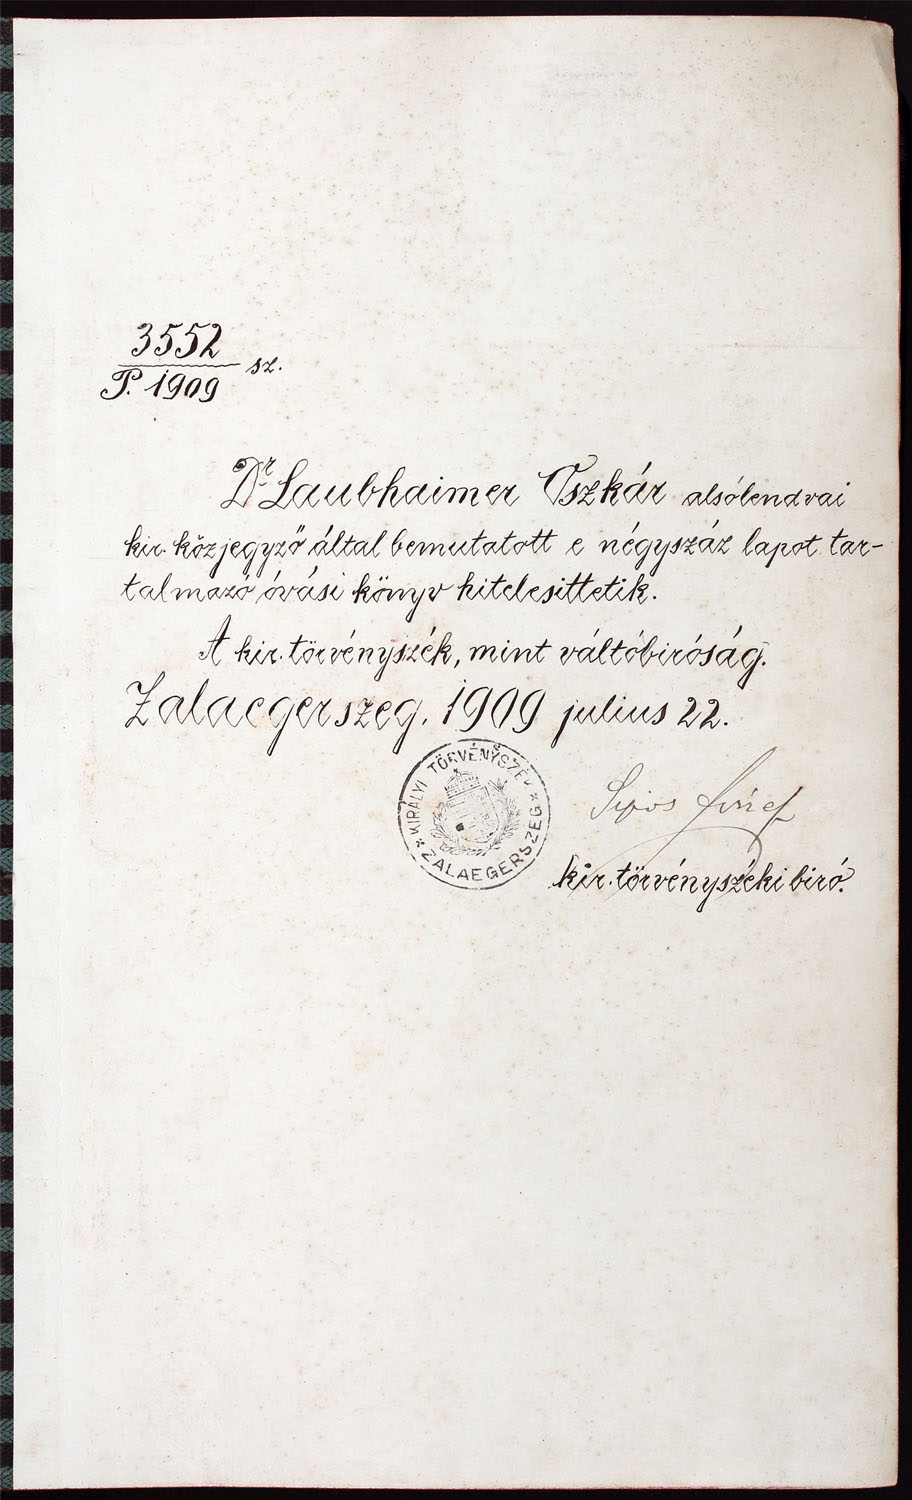 3552
P. 1909 sz.
Dr Laubhaimer Oszkár alsólendvai
kir. közjegyző által bemutatott e négyszáz lapot tar-
talmazó óvási könyv hitelesittetik.
A kir. törvényszék, mint váltóbiróság.
Zalaegerszeg, 1909 julius 22.
KIRÁLYI TÖRVÉNYSZÉK * ZALAEGERSZEG *
Sipos József
kir. törvényszéki biró.